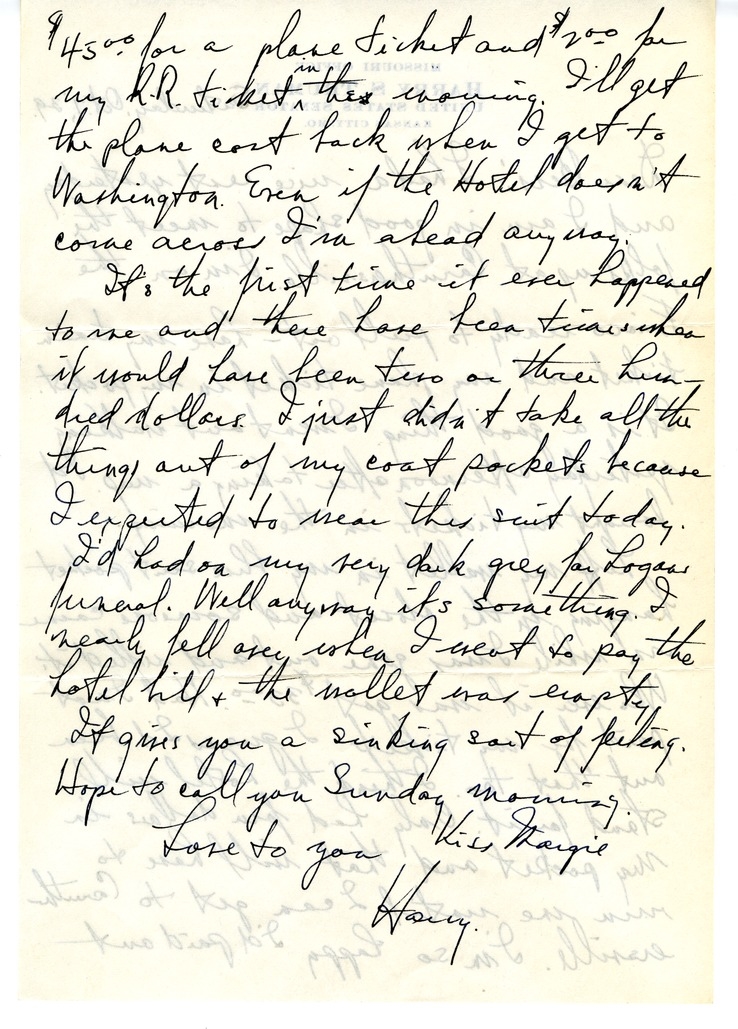 $45⁰⁰ for a plane ticket and $2⁰⁰ for
my R.R. ticket in the morning. I'll get
the plane cost back when I get to
Washington. Even if the Hotel doesn't
come across I'm ahead anyway.
It's the first time it ever happened
to me and there have been times when
it would have been two or three hun-
dred dollars. I just didn't take all the
things out of my coat pockets because
I expected to wear this suit today.
I'd had on my very dark grey for Logans
funeral. Well anyway it's something. I
nearly fell over when I went to pay the
hotel bill & the wallet was empty.
It gives you a sinking sort of feeling.
Hope to call you Sunday morning.
Love to you Kiss Margie
Harry.